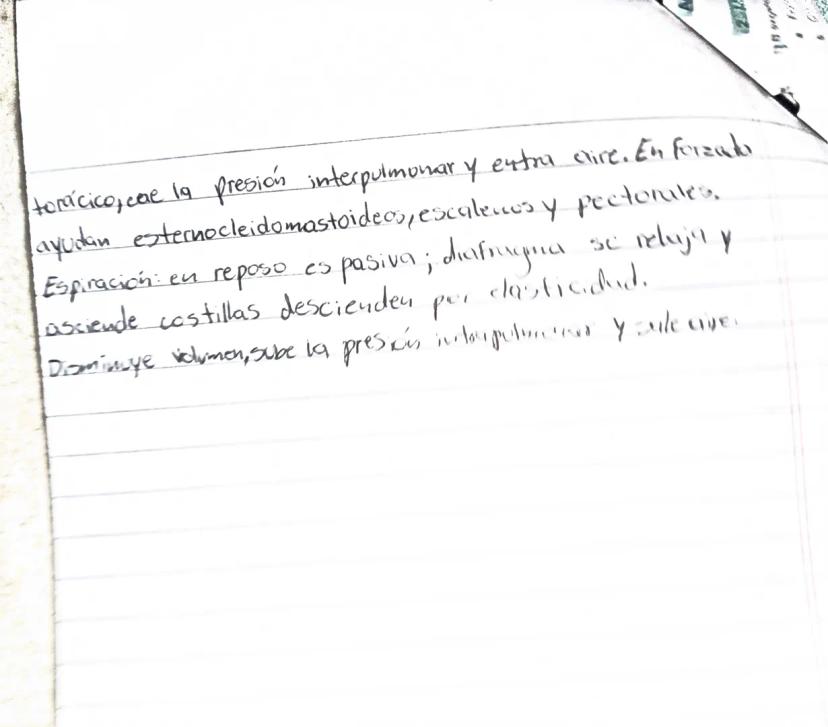 torácico, cae la presión interpulmonar y entra aire. En forzado
ayudan esternocleidomastoideos, escalenos y pectorales.
Espiración: en reposo es pasiva; diafragma se relaja y
asciende costillas descienden por elasticidad.
Disminuye volumen, sube la presión interpulmonar y sale aire.